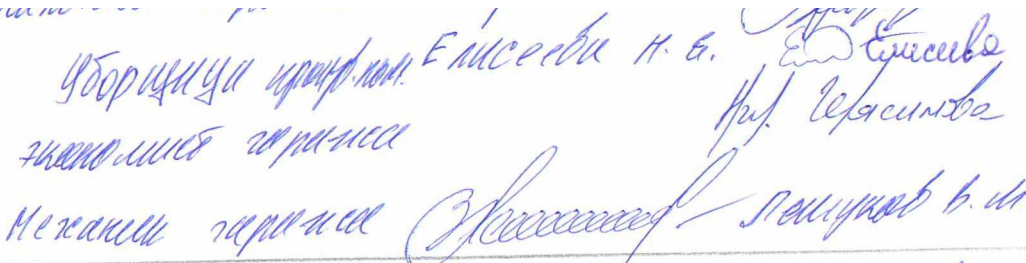 Уборщица произв. пом. Елисеева Н. Е. Елисеева
экономист гаража Герасимова
Механик гаража Пашуков В. М